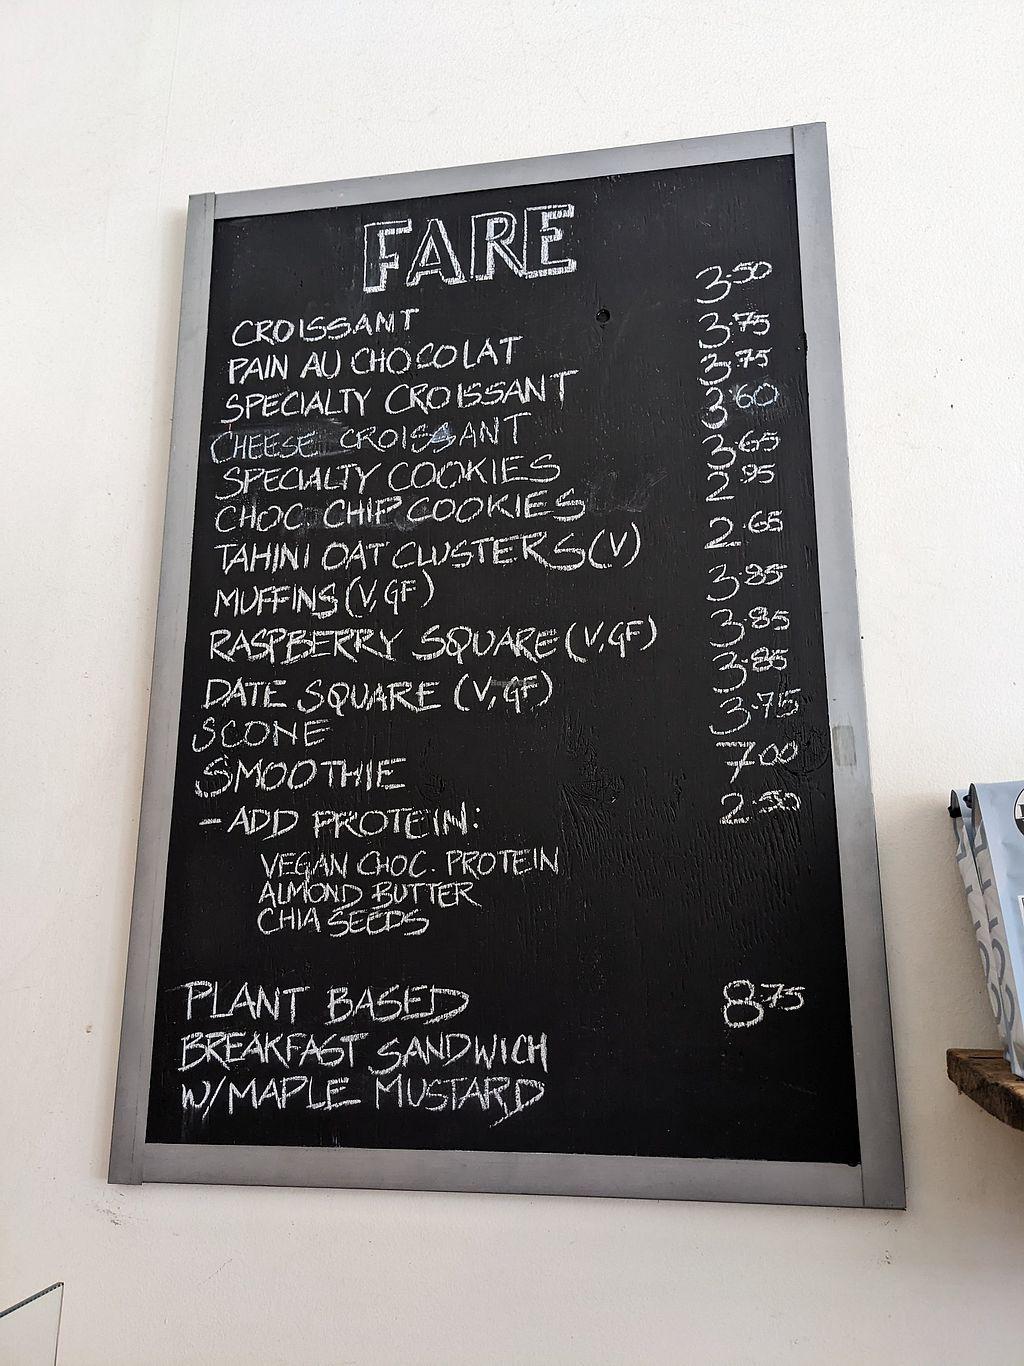 FARE
CROISSANT 3.50
PAIN AU CHOCOLAT 3.75
SPECIALTY CROISSANT 3.75
CHEESE CROISSANT 3.60
SPECIALTY COOKIES 3.65
CHOC CHIP COOKIES 2.95
TAHINI OAT CLUSTERS (V) 2.65
MUFFINS (V, GF) 3.85
RASPBERRY SQUARE (V, GF) 3.85
DATE SQUARE (V, GF) 3.85
SCONE 3.75
SMOOTHIE 7.00
- ADD PROTEIN: 2.50
VEGAN CHOC. PROTEIN
ALMOND BUTTER
CHIA SEEDS
PLANT BASED 8.75
BREAKFAST SANDWICH
W/ MAPLE MUSTARD